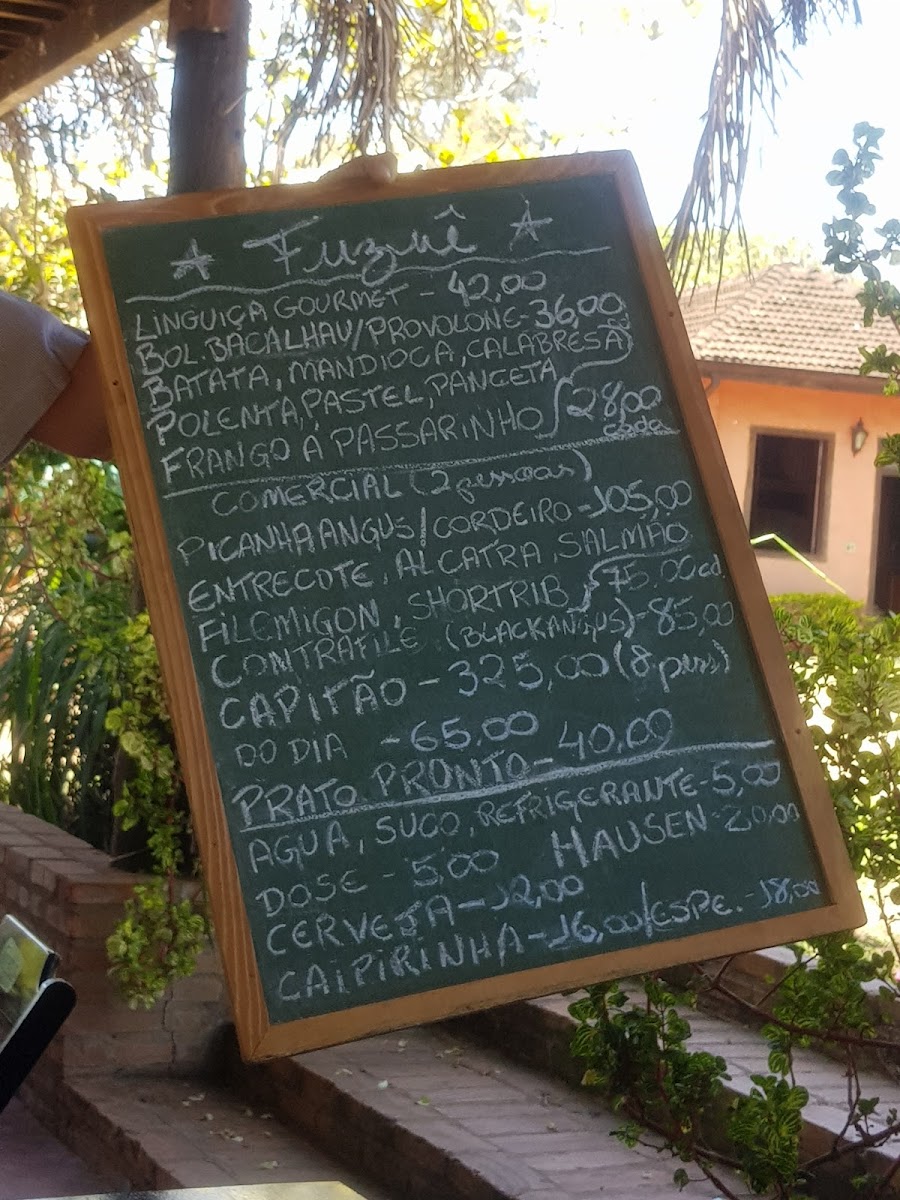 ☆ Fuzuê ☆
LINGUIÇA GOURMET - 42,00
BOL. BACALHAU/PROVOLONE - 36,00
BATATA, MANDIOCA, CALABRESA
POLENTA, PASTEL, PANCETA
FRANGO A PASSARINHO 28,00 cada
COMERCIAL (2 pessoas)
PICANHA ANGUS/CORDEIRO - 105,00
ENTRECOTE, ALCATRA, SALMÃO
FILEMIGON, SHORTRIB 75,00 cd.
CONTRAFILÉ (BLACKANGUS) - 85,00
CAPITÃO - 325,00 (8 pers)
DO DIA - 65,00
PRATO PRONTO - 40,00
AGUA, SUCO, REFRIGERANTE - 5,00
DOSE - 5,00 HAUSEN - 20,00
CERVEJA - 12,00
CAIPIRINHA - 16,00/ESPE. - 18,00